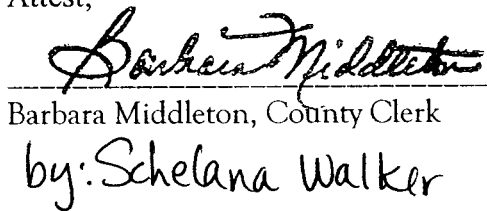 Attest,
Barbara Middleton
Barbara Middleton, County Clerk
by: Schelana Walker